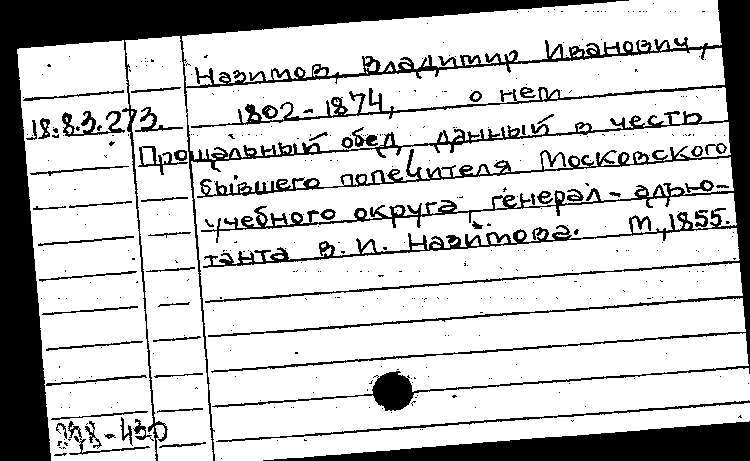 Назимов, Владимир Иванович,
1802-1874, о нем
18.8.3.273.
Прощальный обед, данный в честь
бывшего попечителя Московского
учебного округа, генерал-адъю-
танта В. И. Назимова. М., 1855.
-430